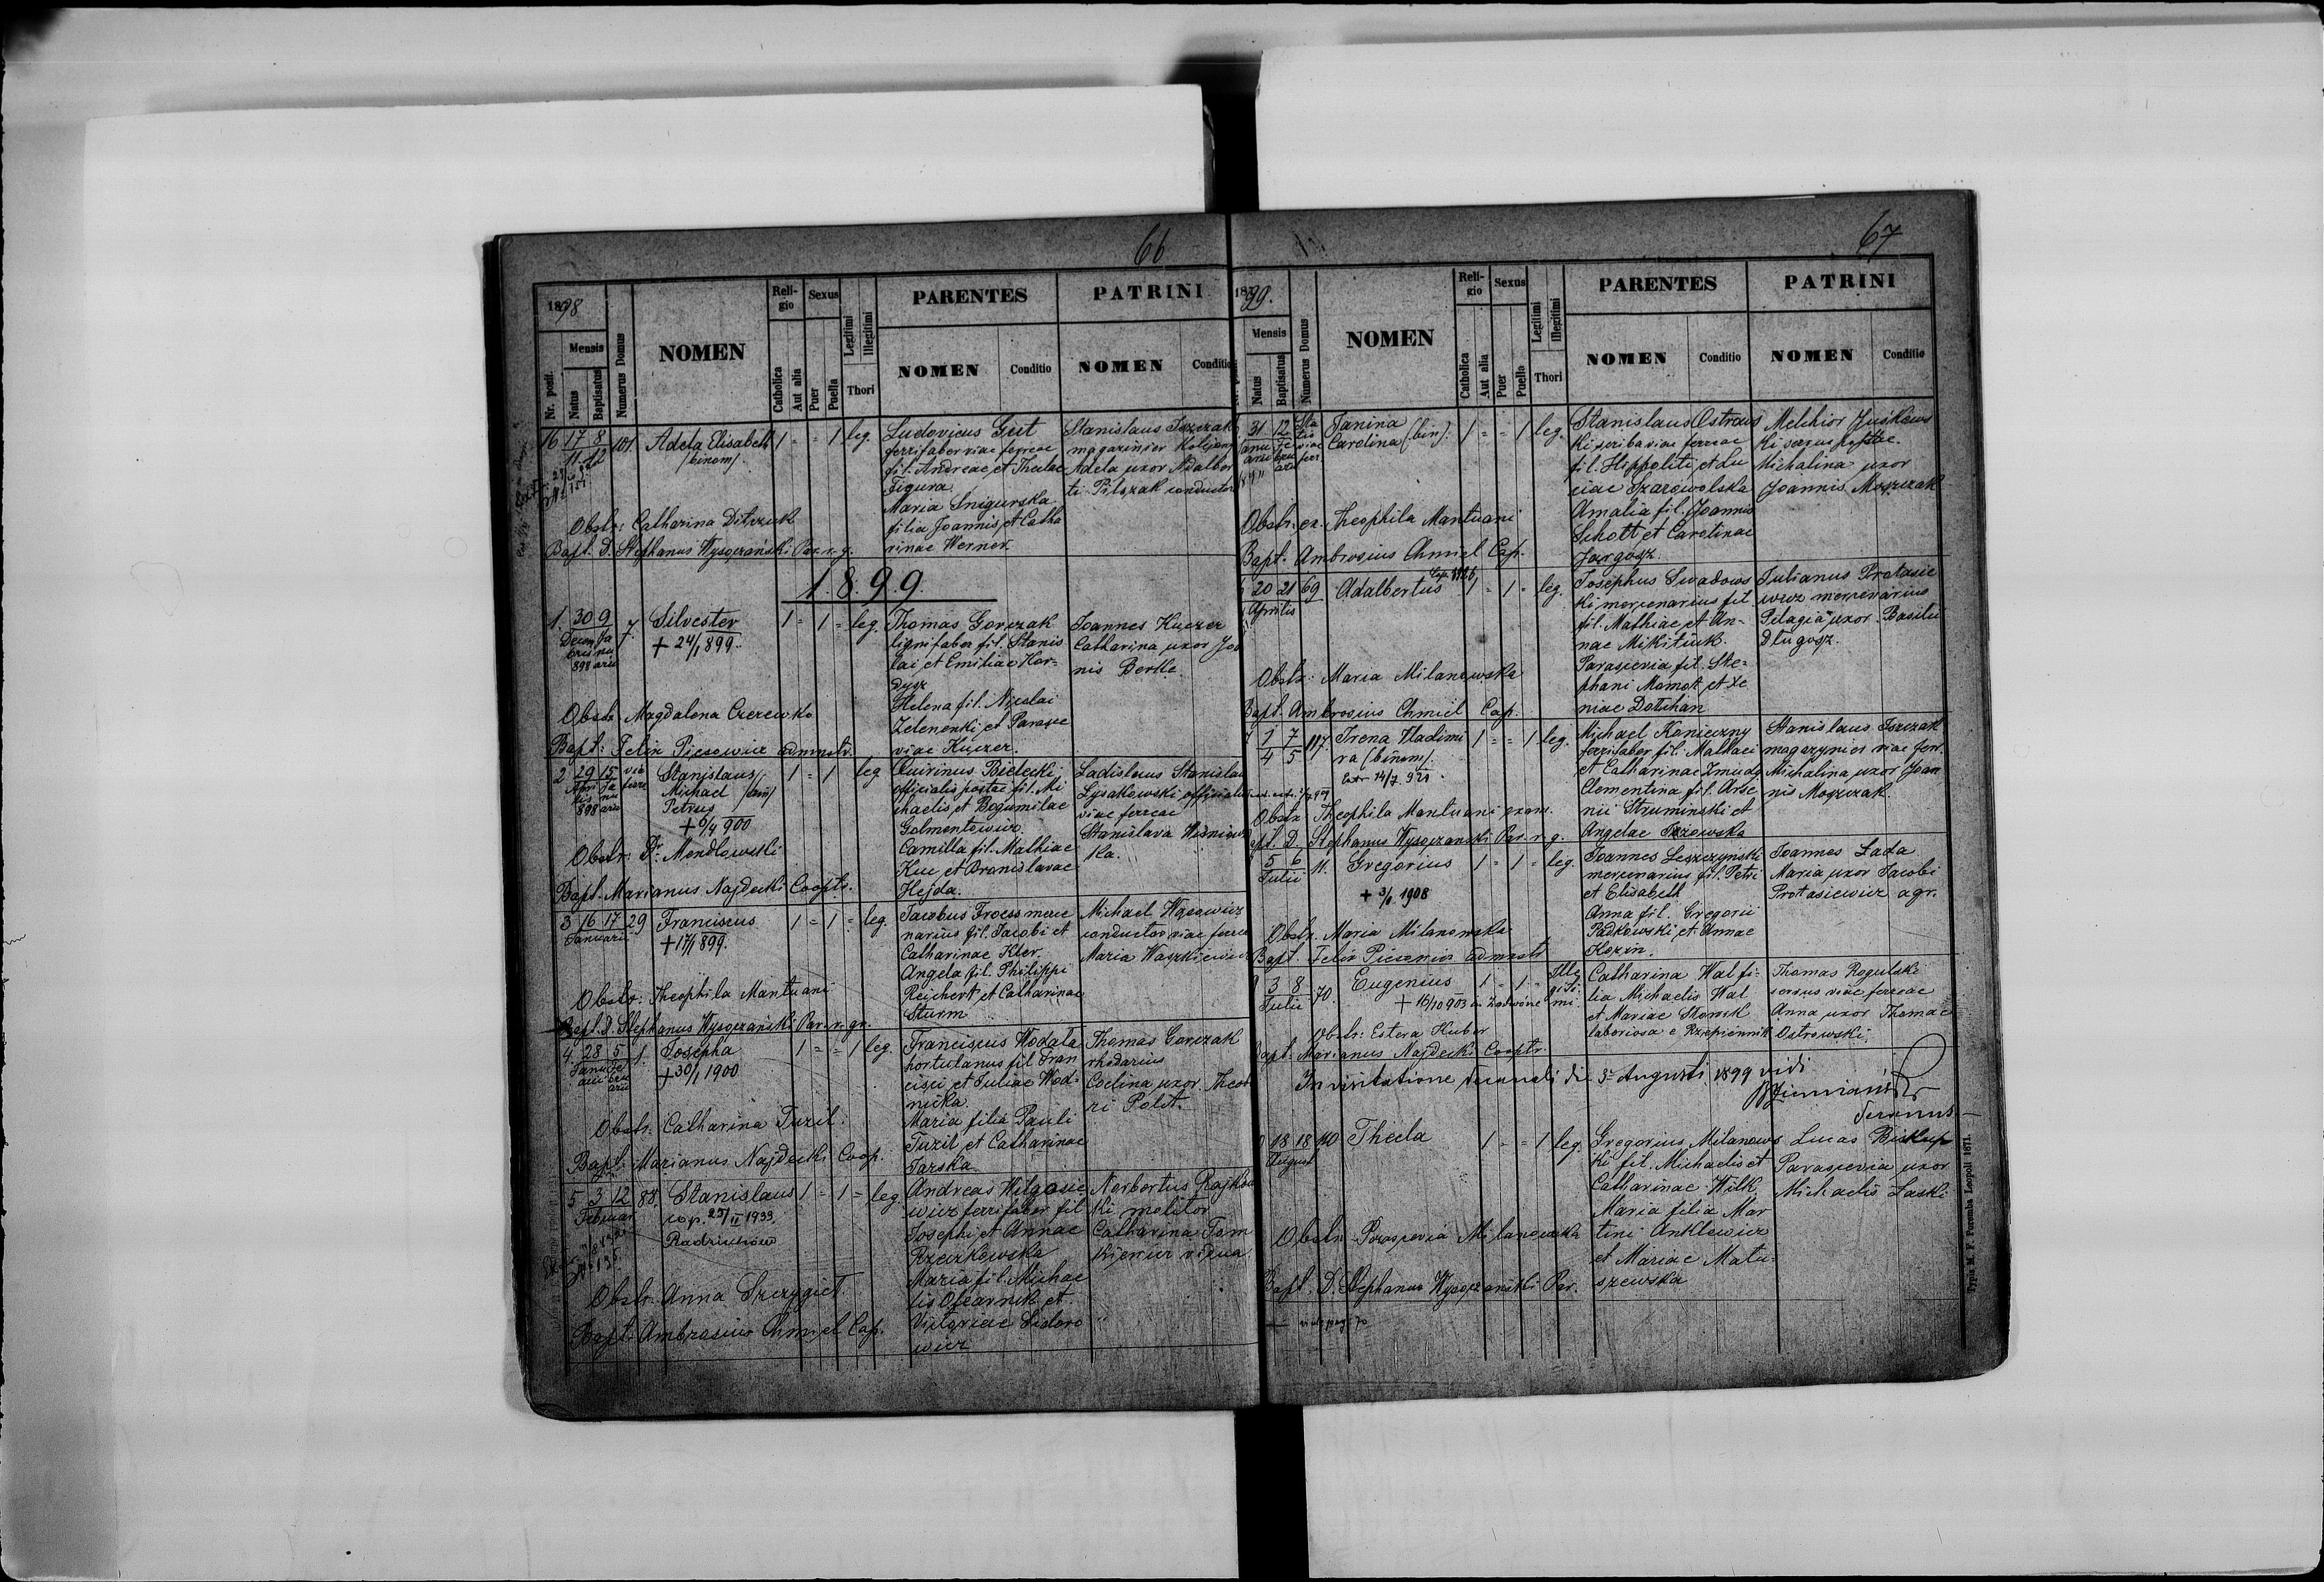 66
1898
Nr. posit.
Mensis
Natus
Baptisatus
Numerus Domus
NOMEN
Religio
Catholica
Aut alia
Sexus
Puer
Puella
Legitimi
Illegitimi
Thori
PARENTES
NOMEN
Conditio
PATRINI
NOMEN
Conditio
16 17/11 8/12 101. Adela Elisabeth 1 = = 1 leg.
/binom/.
Ludovicus Gut
ferrifaber viae ferreae
fil. Andreae et Theclae
Figura
Maria Snigurska
filia Joannis et Catha
rinae Werner.
Stanislaus Iszczak
magazinier
Adela uxor Adalber
ti Pitszak conductor
Obstr: Catharina Ditczuk
Bapt. D. Stephanus Wysoczański Par. r. g.
1.8.9.9.
1. 30 Decembris 898 9 Januarii 7. Silvester 1 = 1 = leg.
+ 24/1 899.
Thomas Gorczak
lignifaber fil. Stanis
lai et Emiliae Kor=
dysz
Helena fil. Nicolai
Zelenenki et Parasce
viae Kuczer.
Joannes Kuczer
Catharina uxor Joa
nis Berke
Obstr. Magdalena Czerewko
Bapt: Felix Piesowicz admnstr.
2 29 Aprilis 898 15 Januarii Stanislaus 1 = 1 leg
Michael
Petrus
+ 6/4 900
Quirinus Bielecki
officialis postae fil. Mi
chaelis et Bogumilae
Golmentowicz.
Camilla fil. Mathiae
Kuc et Bronislavae
Hejda.
Ladislaus Stanislau
Lysakowski officialis
viae ferreae
Stanislava Wisniews
ka.
Obstr. Dr. Mendlowski
Bapt. Marianus Najdecki Cooptr.
3 16 17 Januarii 29 Franciscus 1 = 1 = leg.
+ 17/1 899.
Jacobus Froess merce
narius fil. Jacobi et
Catharinae Kler.
Angela fil. Philippi
Reichert et Catharinae
Sturm
Michael Wąsowicz
conductor viae ferre
Maria Waszkiewicz
Obstr: Theophila Mantuani
Bapt. D. Stephanus Wysoczański Par. r. gr.
4. 28 Januarii 5 Februarii 1. Josepha 1 = = 1 leg.
+ 30/1 1900
Franciscus Wodala
hortulanus fil Fran
cisci et Juliae Wod=
nicka.
Maria filia Pauli
Tuzil et Catharinae
Jarska
Thomas Gorczak
rhedarius
Coelina uxor Theod
ri Polit.
Obstr: Catharina Tuzil.
Bapt: Marianus Najdecki Coop.
5 3 12 Februar 88. Stanislaus 1 = 1 = leg
cop. 25/II 1933.
Radziechów
Andreas Witgosie
wicz ferrifaber fil
Josephi et Annae
Rzeczkowska
Maria fil. Michae
lis Ofearnik et
Victoriae Sidoro
wicz
Norbertus Rajkow
ki molitor
Catharina Tom
kiewicz vidua
Obstr. Anna Szczygiel.
Bapt. Ambrosius Chmiel Cap.
67
1899.
Mensis
Natus
Baptisatus
Numerus Domus
NOMEN
Religio
Catholica
Aut alia
Sexus
Puer
Puella
Legitimi
Illegitimi
Thori
PARENTES
NOMEN
Conditio
PATRINI
NOMEN
Conditio
31 Januarii 12 Februarii Statio viae fer Janina 1 = = 1 leg.
Carolina (bin).
Stanislaus Ostrows
ki scriba viae ferreae
fil. Hippoliti et Lu
ciae Szarowolska
Amalia fil. Joannis
Schott et Carolinae
Jargosz.
Melchior Juskows
ki servus postae.
Michalina uxor
Joannis Moszczak
Obstr. ex. Theophila Mantuani
Bapt. Ambrosius Chmiel Cap.
20 21 Aprilis 69 Adalbertus 1 = 1 = leg.
Josephus Swadows
ki mercenarius fil
fil. Mathiae et An=
nae Mikitiuk.
Parascevia fil. Ste=
phani Momot et Xe
niae Dotchan
Julianus Protasie
wicz mercenarius
Pelagia uxor Basilii
Długosz.
Obstr: Maria Milanowska
Bapt. Ambrosius Chmiel Cap.
1/4 7/5 117. Irena Wladimi 1 = = 1 leg.
ra (binom).
Extr 14/7. 921.
Michael Konieczny
ferrifaber fil. Mathaei
et Catharinae Zmudz
Clementina fil. Arse
nii Struminski et
Angelae
Stanislaus Iszczak
magazynier viae ferr.
Michalina uxor Joan
nis Moszczak.
Obstr Theophila Mantuani exam.
Bapt. D. Stephanus Wysoczanski Par. r. g.
5 6 Julii 11. Gregorius 1 = 1 = leg.
+ 3/1 1908
Joannes Leszczynski
mercenarius fil. Petri
et Elisabeth
Anna fil. Gregorii
Radkowski et Annae
Kozin.
Joannes Łada
Maria uxor Jacobi
Protasiewicz agr.
Obstr. Maria Milanowska
Bapt. Felix Piesowicz admnstr
3 8 Julii 70. Eugenius 1 = 1 = Illegitimi.
+ 16/10 903 in
Catharina Wal fi=
lia Michaelis Wal
et Mariae Słomsk
laboriosa e Rzepiennik
Thomas Rogulski
servus viae ferreae
Anna uxor Thomae
Ostrowski.
Obstr: Estera Huber
Bapt. Marianus Najdecki Cooptr.
In visitatione decanali die 3. Augusti 1899 vidi
decanus
18 18 August 140 Thecla 1 = = 1 leg.
Gregorius Milanows
ki fil. Michaelis et
Catharinae Wilk.
Maria filia Mar
tini Anklewicz
et Mariae Matu=
szewska
Lucas Biskup
Parascevia uxor
Michaelis Laski
Obstr. Parascevia Milanowska
Bapt. D. Stephanus Wysoczański Par.
Typis M. F. Poremba Leopoli 1871.